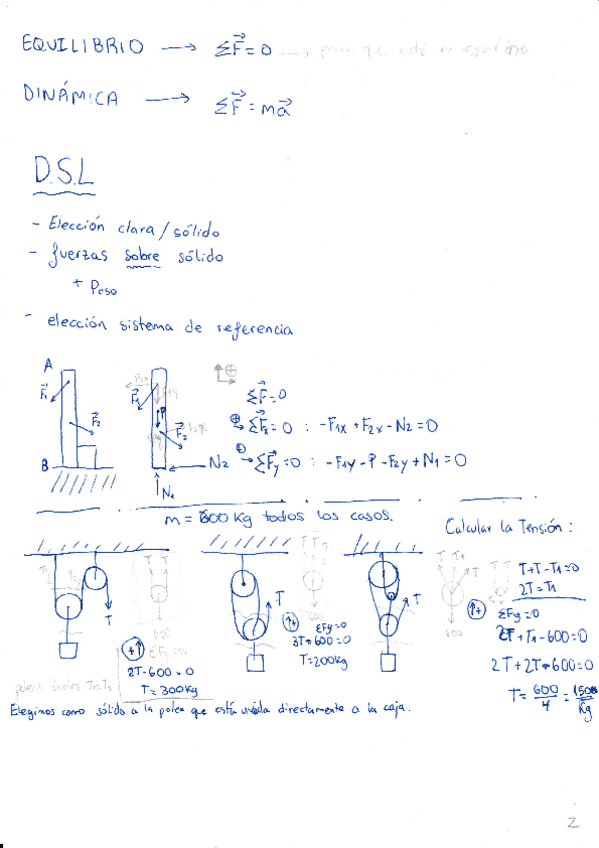 EQUILIBRIO → ΣF⃗ = 0 → para que esté en equilibrio.
DINÁMICA → ΣF⃗ = ma⃗
D.S.L
- Elección clara/sólido
- fuerzas sobre sólido
+ Peso
- elección sistema de referencia
A
F⃗1
F⃗2
B
F1x
F⃗1
F1y
P
F⃗2
F2x
N2
N1
ΣF⃗ = 0
⊕→ ΣF⃗x = 0 : -F1x + F2x - N2 = 0
ΣF⃗y = 0 : -F1y - P - F2y + N1 = 0
m = 600 Kg todos los casos.
Calcular la Tensión:
T
T T
600
ΣFy = 0
2T - 600 = 0
T = 300 Kg
T
T T T
600
ΣFy = 0
3T - 600 = 0
T = 200 Kg
T
T T1
T
600
T+T-T1=0
2T = T1
ΣFy = 0
2T + T1 - 600 = 0
2T + 2T - 600 = 0
T = 600/4 = 150 Kg
Elegimos como sólido a la polea que está unida directamente a la caja.
2